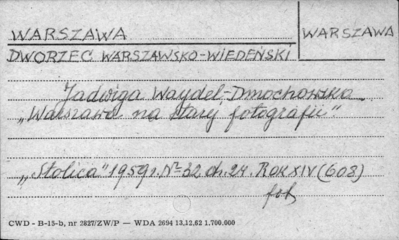 WARSZAWA
WARSZAWA
DWORZEC WARSZAWSKO-WIEDEŃSKI
Jadwiga Waydel-Dmochowska
„Warszawa na starej fotografii"
„Stolica" 1959r. Nº 32 ch. 24. ROK XIV (608)
fot
CWD - B-13-b, nr 2827/ZW/P — WDA 2694 13.12.62 1.700.000